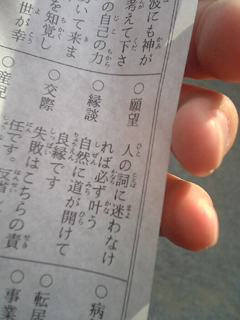 波にも神が
考えて下さ
の自己の力
いて来ま
を知覚し
世が幸
○願望 人の詞に迷わなけ
れば必ず叶う
○縁談 自然に道が開けて
良縁です
○交際 失敗はこちらの責
任です。反省
○病
○転居
○事業